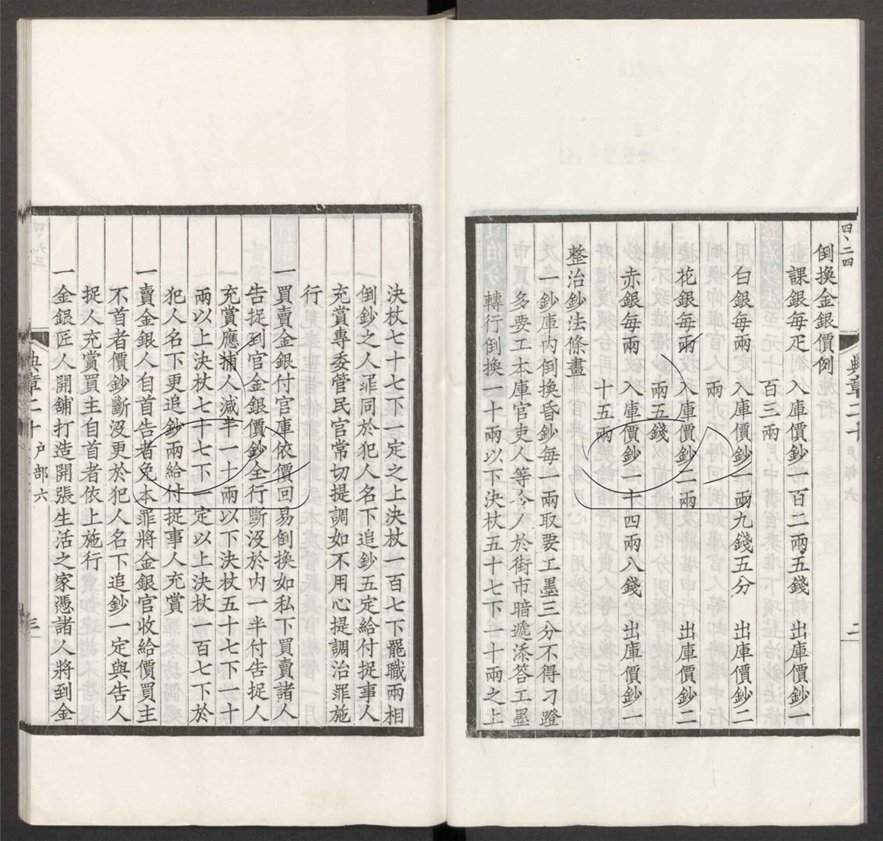 四、二四
倒換金銀價例
課銀每疋 入庫價鈔一百二兩五錢 出庫價鈔一
百三兩
白銀每兩 入庫價鈔一兩九錢五分 出庫價鈔二
兩
花銀每兩 入庫價鈔二兩 出庫價鈔二
兩五錢
赤銀每兩 入庫價鈔一十四兩八錢 出庫價鈔一
十五兩
整治鈔法條畫
一鈔庫內倒換昏鈔每一兩取要工墨三分不得刁蹬
多要工本庫官吏人等令人於街市暗遞添答工墨
轉行倒換一十兩以下決杖五十七下一十兩之上
典章二十 户部六
二
決杖七十七下一定之上決杖一百七下罷職兩相
倒鈔之人罪同於犯人名下追鈔五定給付捉事人
充賞專委管民官常切提調如不用心提調治罪施
行
一買賣金銀付官庫依價回易倒換如私下買賣諸人
告捉到官金銀價鈔全行斷沒於內一半付告捉人
充賞應捕人減半一十兩以下決杖五十七下一十
兩以上決杖七十七下一定以上決杖一百七下於
犯人名下更追鈔兩給付捉事人充賞
一賣金銀人自首告者免本罪將金銀官收給價買主
不首者價鈔斷沒更於犯人名下追鈔一定與告人
捉人充賞買主自首者依上施行
一金銀匠人開舖打造開張生活之家憑諸人將到金
典章二十 户部六
三